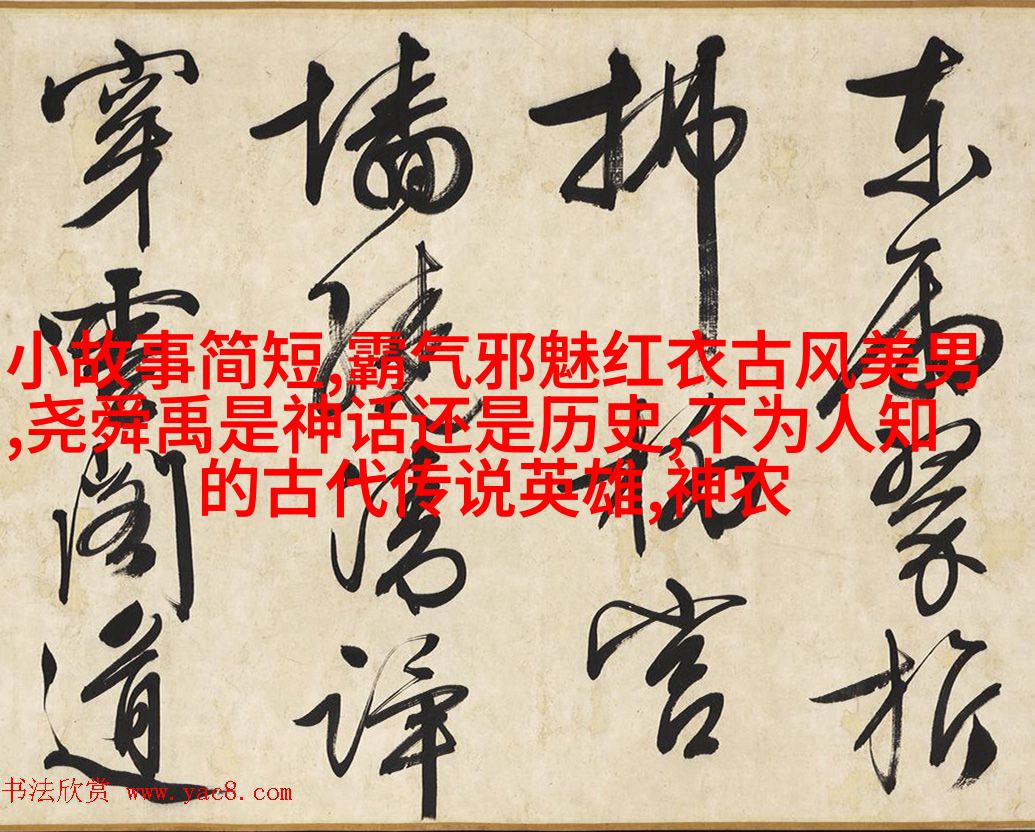 小故事简短,霸气邪魅红衣古风美男
,尧舜禹是神话还是历史,不为人知
的古代传说英雄,神农
東翠
拂宫
墙清
穿雲阁道
书法欣赏 www.yac8.com